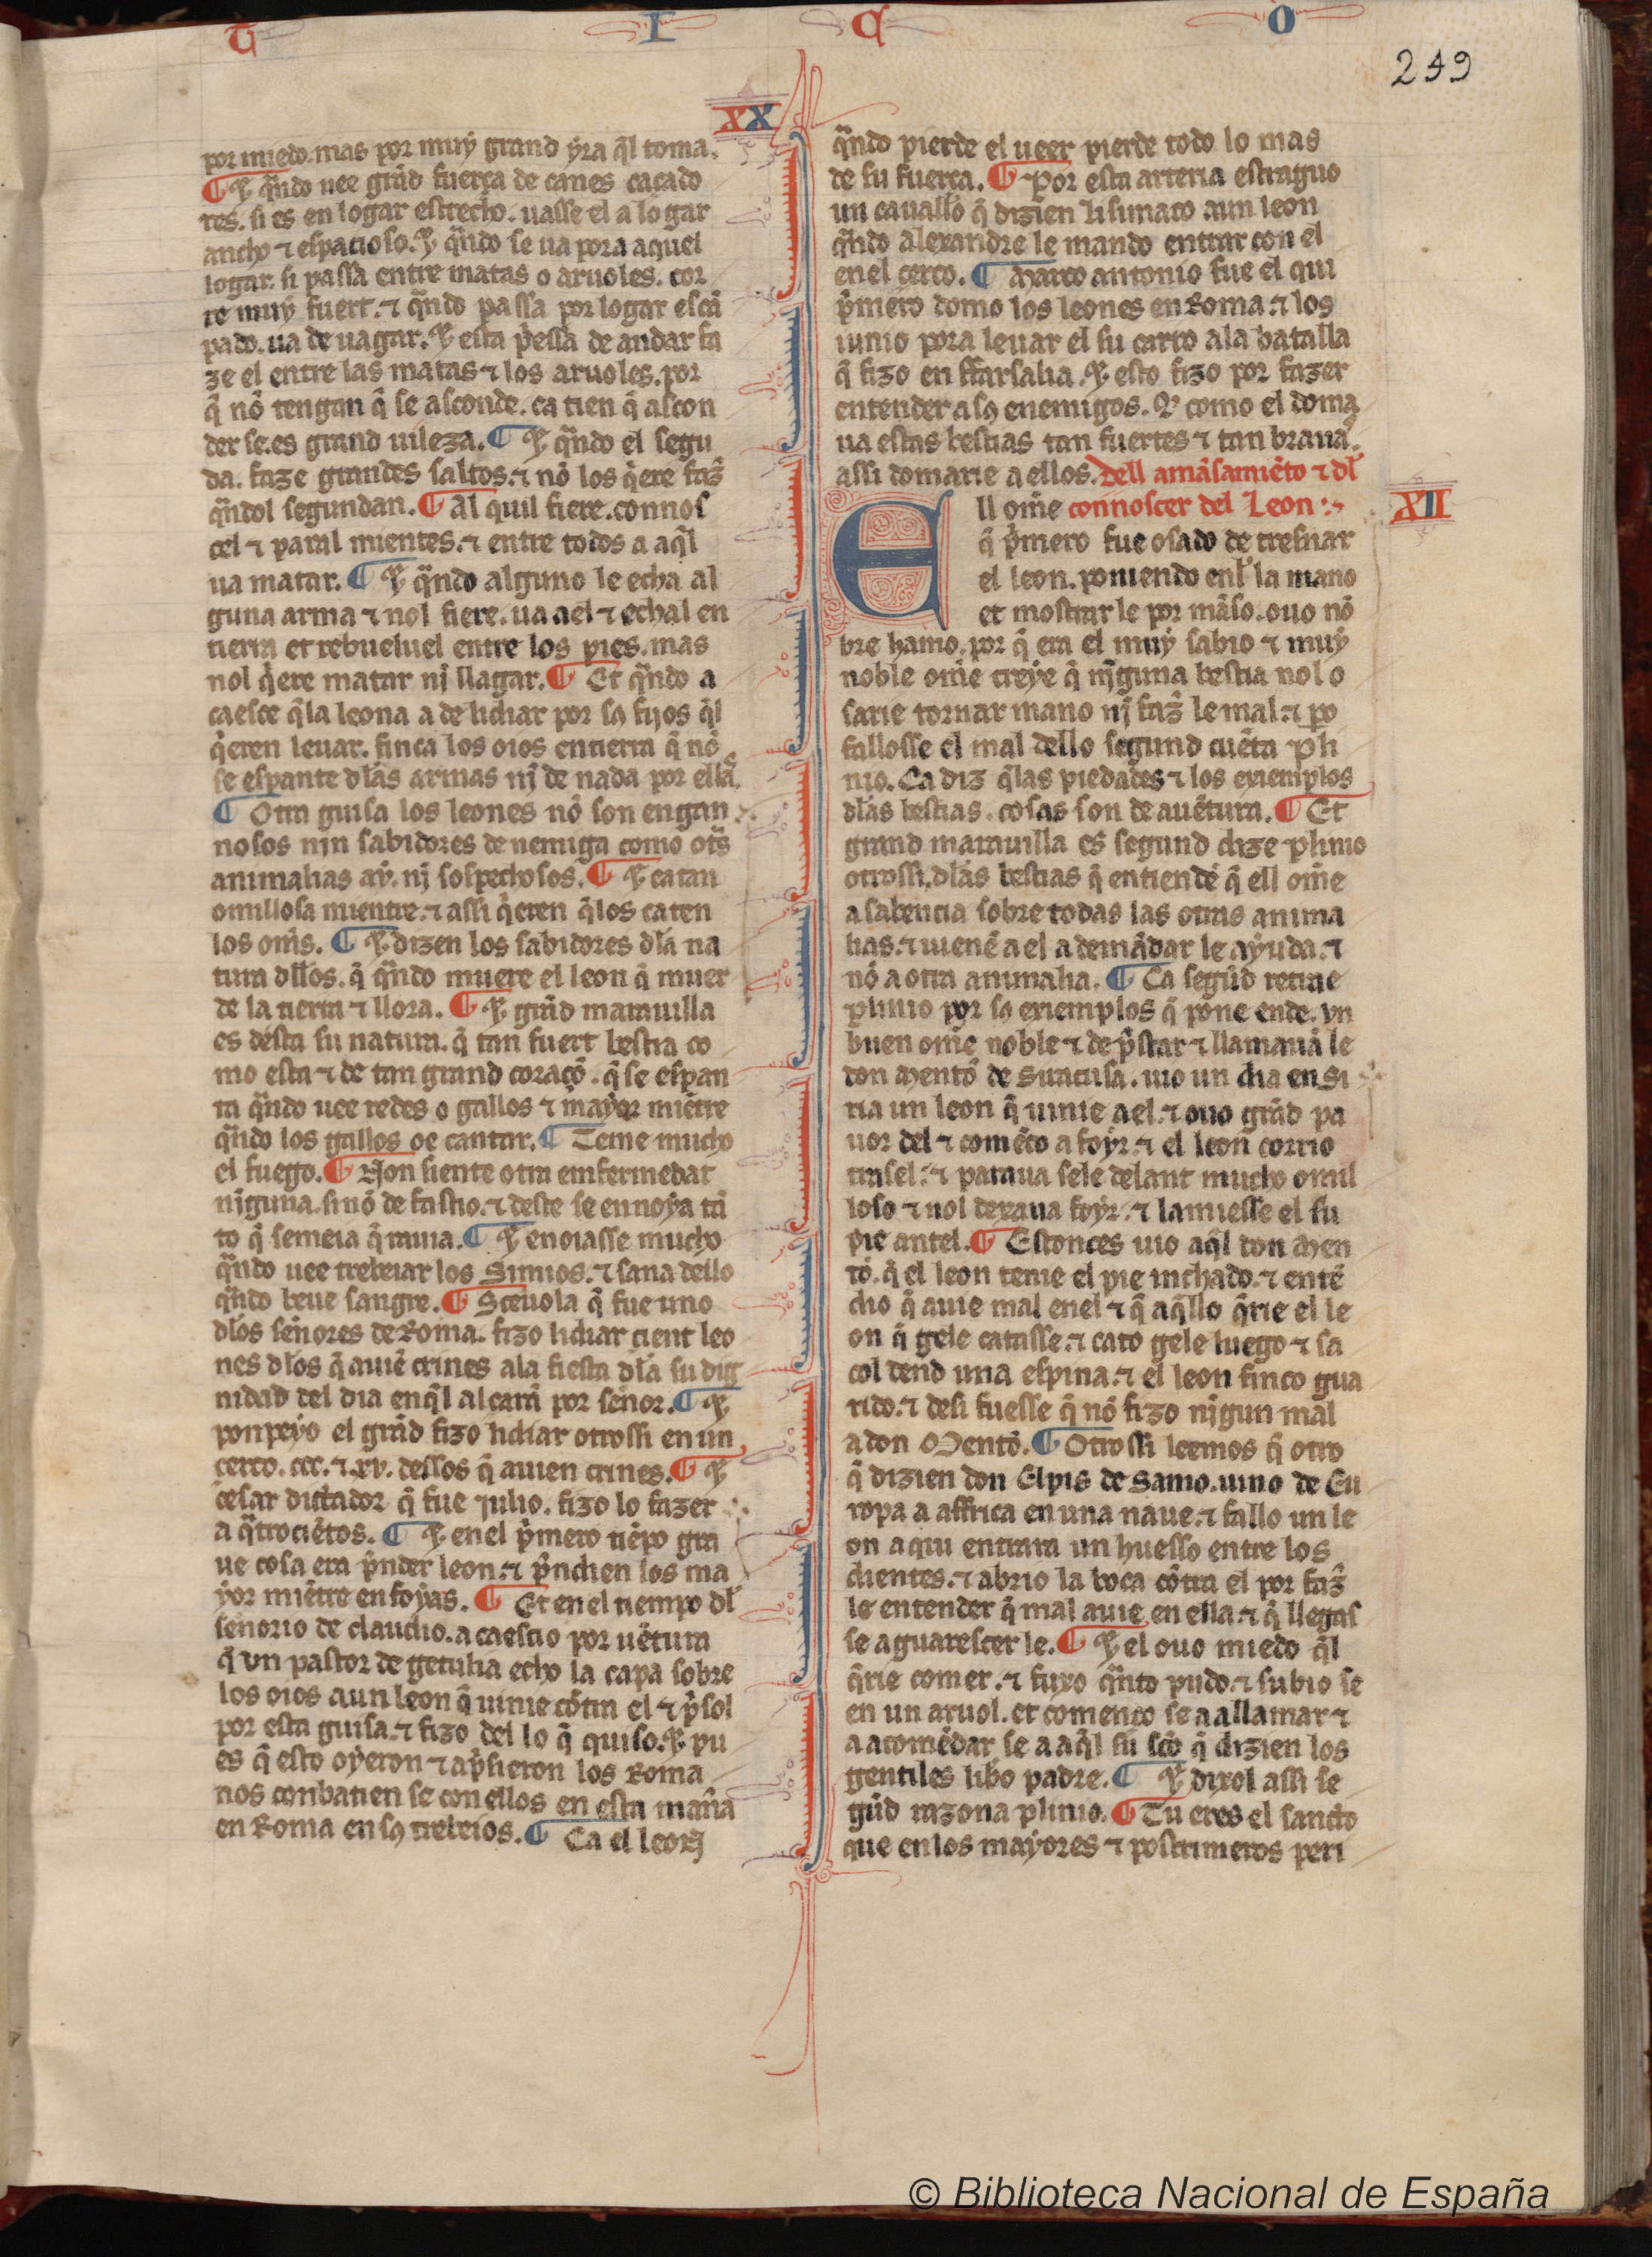 T I C O
249
XX
por miedo. mas por muy grand yra q̃l toma.
¶ Et q̃ndo uee grãd fuerça de canes caçado
res. si es en logar estrecho. uasse el a logar
ancho ⁊ espacioso. Et q̃ndo se ua pora aquel
logar. si passa entre matas o aruoles. cor
re muy fuert. ⁊ q̃ndo passa por logar escã
pado. ua de uagar. Et esta p̃essa de andar fa
ze el entre las matas ⁊ los aruoles. por
q̃ nõ tengan q̃ se asconde. ca tien q̃ ascon
der se. es grand uileza. ¶ Et q̃ndo el segu
da. faze grandes saltos. ⁊ nõ los q̃ere faz̃
q̃ndol segundan. ¶ Al quil fiere. connos
cel ⁊ paral mientes. ⁊ entre todos a aq̃l
ua matar. ¶ Et q̃ndo alguno le echa al
guna arma ⁊ nol fiere. ua ael ⁊ echal en
tierra et rebueluel entre los pies. mas
nol q̃ere matar nĩ llagar. ¶ Et q̃ndo a
caesce q̃la leona a de lidiar por sꝯ fijos q̃l
q̃eren leuar. finca los oios entierra q̃ nõ
se espante dl̃as armas nĩ de nada por ellas.
¶ Otra guisa los leones nõ son engan
nosos nin sabidores de nemiga como otr̃s
animalias aẏ. nĩ sospechosos. ¶ Et catan
omillosa mientre. ⁊ assi q̃eren q̃los caten
los om̃s. ¶ Et dizen los sabidores dl̃a na
tura dll̃os. q̃ q̃ndo muere el leon q̃ muer
de la tierra ⁊ llora. ¶ Et grãd marauilla
es desta su natura. q̃ tan fuert bestia co
mo esta ⁊ de tan grand coraçõ. q̃ se espan
ta q̃ndo uee redes o gallos ⁊ mayor miẽtre
q̃ndo los gallos oe cantar. ¶ Teme mucho
el fuego. ¶ Non siente otra enfermedat
nĩguna. sinõ de fastio. ⁊ deste se ennoya tã
to q̃ semeia q̃ rauia. ¶ Et enoiasse mucho
q̃ndo uee trebeiar los Simios. ⁊ sana dello
q̃ndo beue sangre. ¶ Sceuola q̃ fue uno
dl̃os señores de Roma. fizo lidiar cient leo
nes dl̃os q̃ auiẽ crines ala fiesta dl̃a su dig
nidad del dia enq̃l alçarã por señor. ¶ Et
ponpeyo el grãd fizo lidiar otrossi en un
cerco. ccc. ⁊ .xv. dellos q̃ auien crines. ¶ Et
cesar dictador q̃ fue Julio. fizo lo fazer
a q̃trociẽtos. ¶ Et enel p̃mero tiẽpo gra
ue cosa era p̃nder leon. ⁊ p̃ndien los ma
yor miẽtre en foyas. ¶ Et en el tiempo dl̃
señorio de claudio. acaescio por uẽtura
q̃ un pastor de getulia echo la capa sobre
los oios aun leon q̃ uinie cõtra el ⁊ p̃sol
por esta guisa. ⁊ fizo del lo q̃ quiso. Et pu
es q̃ esto oyeron ⁊ ap̃sieron los Roma
nos conbatien se con ellos en esta mañã
en Roma en sꝯ trebeios. ¶ Ca el leon
q̃ndo pierde el ueer pierde todo lo mas
de su fuerça. ¶ Por esta arteria estraguo
un cauallo q̃ dizien lisimaco aun leon
q̃ndo alexandre le mando entrar con el
en el cerco. ¶ Marco antonio fue el qui
p̃mero domo los leones en Roma. ⁊ los
iunio pora leuar el su carro ala batalla
q̃ fizo en ffarsalia. Et esto fizo por fazer
entender a sꝯ enemigos. Q̃ como el doma
ua estas bestias tan fuertes ⁊ tan brauas.
assi domarie a ellos. Dell amãsamiẽto ⁊ dl̃
Ell om̃e connoscer del Leon :~
XII
q̃ p̃mero fue osado de trefnar
el leon. poniendo enl̃ la mano
et mostrar le por mãso. ouo nõ
bre hanno. por q̃ era el muy sabio ⁊ muẏ
noble om̃e creye q̃ nĩguna bestia nol o
sarie tornar mano nĩ faz̃ le mal. ⁊ po
fallosse el mal dello segund cuẽta pli
nio. Ca diz q̃las piedades ⁊ los exiemplos
dl̃as bestias. cosas son de auẽtura. ¶ Et
grand marauilla es segund dize plinio
otrossi. dl̃as bestias q̃ entiendẽ q̃ ell om̃e
a sabencia sobre todas las otras anima
lias. ⁊ uienẽ a el a demãdar le ayuda. ⁊
nõ a otra animalia. ¶ Ca segũd retrae
plinio por sꝯ exiemplos q̃ pone ende. vn
buen om̃e noble ⁊ de p̃star ⁊ llamauã le
don Mentõ de Siracusa. uio un dia en Si
ria un leon q̃ uinie ael. ⁊ ouo grãd pa
uor del ⁊ comẽço a foyr. ⁊ el leon corrio
trasel. ⁊ paraua sele delant mucho omil
loso ⁊ nol dexaua foyr. ⁊ lamiesse el su
pie antel. ¶ Estonces uio aq̃l don Men
tõ. q̃ el leon tenie el pie inchado. ⁊ entẽ
dio q̃ auie mal enel ⁊ q̃ aq̃llo q̃rie el le
on q̃ gele catasse. ⁊ cato gele luego ⁊ sa
col dend una espina. ⁊ el leon finco gua
rido. ⁊ desi fuesse q̃ nõ fizo nĩgun mal
adon Mentõ. ¶ Otrossi leemos q̃ otro
q̃ dizien don Elpis de Samo. uino de Eu
ropa a affrica en una naue. ⁊ fallo un le
on a qui entrara un huesso entre los
dientes. ⁊ abrio la boca cõtra el por faz̃
le entender q̃ mal auie en ella. ⁊ q̃ llegas
se aguarescer le. ¶ Et el ouo miedo q̃l
q̃rie comer. ⁊ fuxo q̃nto pudo. ⁊ subio se
en un aruol. et començo se a allamar ⁊
a acomẽdar se a aq̃l su sc̃o q̃ dizien los
gentiles libo padre. ¶ Et dixol assi se
gũd razona plinio. ¶ Tu eres el sancto
que en los mayores ⁊ postrimeros peri
© Biblioteca Nacional de España